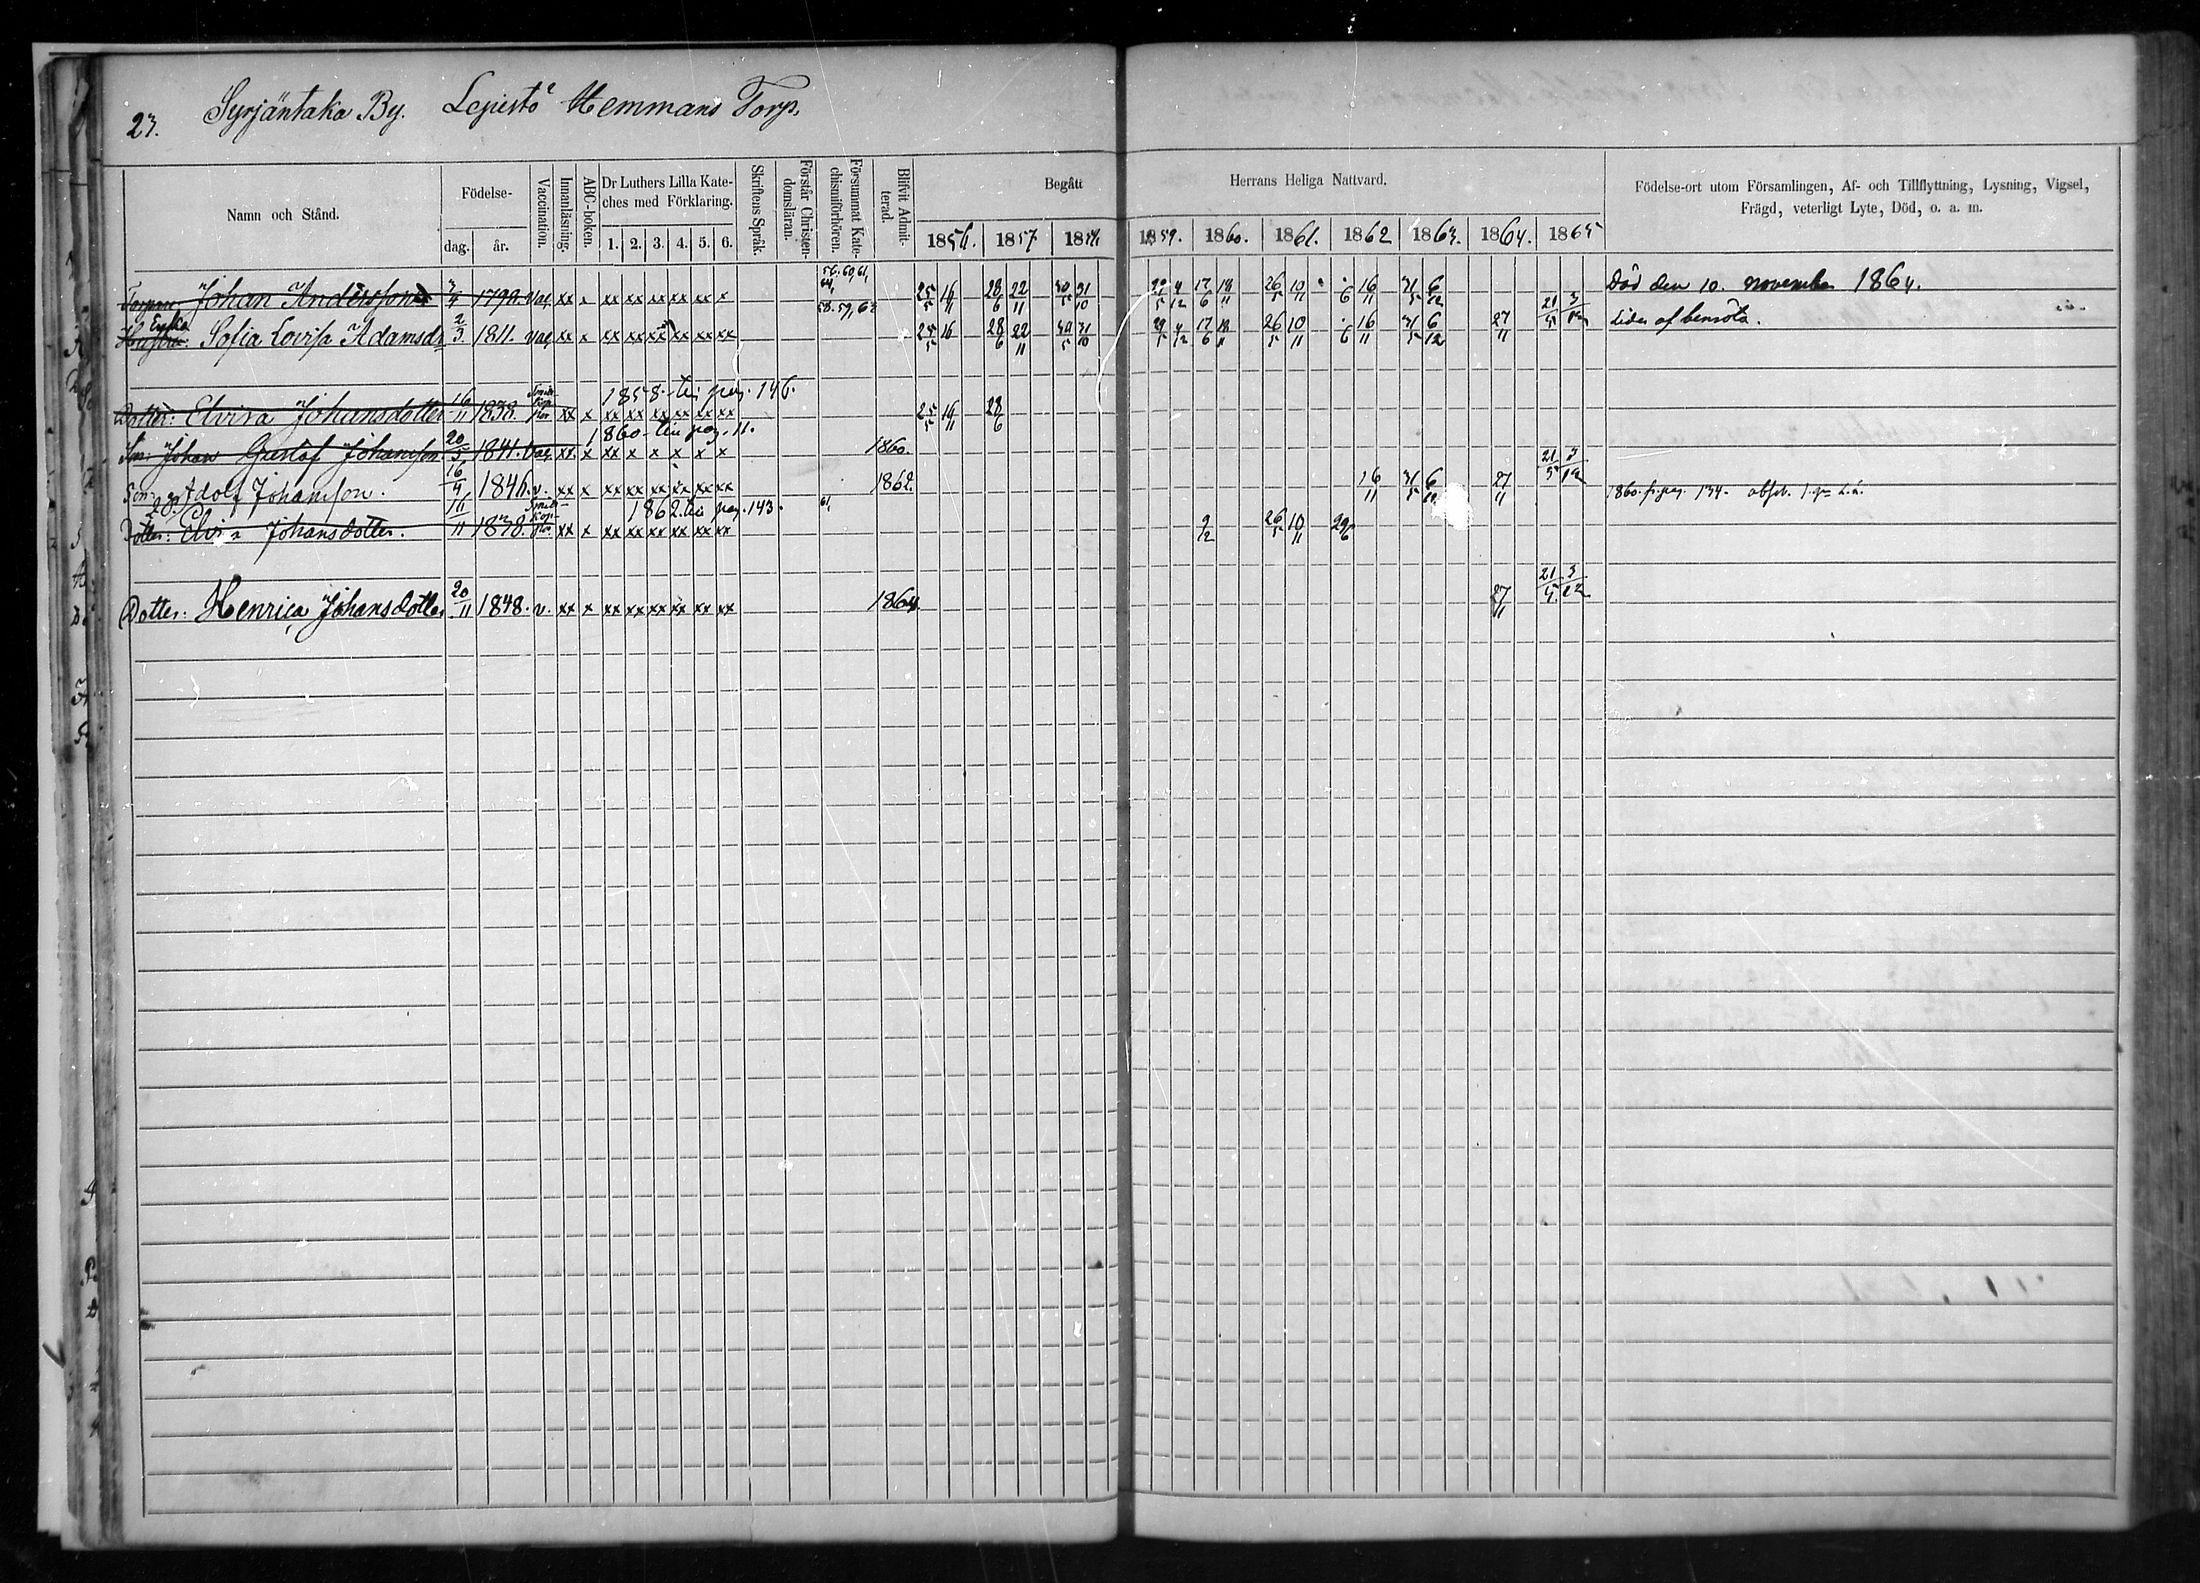 23. Syrjäntaka By. Lepistö Hemmans Torp.
Namn och Stånd. Födelse- dag. år. Vaccination. Innanläsning. ABC-boken. Dr Luthers Lilla Kateches med Förklaring. 1. 2. 3. 4. 5. 6. Skriftens Språk. Förstår Christendomsläran. Försummat Katechismiförhören. Blifvit Admitterad. Begått Herrans Heliga Nattvard. 1856. 1857 1858. 1859. 1860. 1861. 1862 1863. 1864. 1865 Födelse-ort utom Församlingen, Af- och Tillflyttning, Lysning, Vigsel, Frägd, veterligt Lyte, Död, o. a. m.
Johan Andersson 1790. Vac xx x xx xx xx xx xx x 25/5 16/11 28/6 22/11 30/5 31/10 22/5 4/12 17/6 18/11 26/5 10/11 16/11 31/5 6/12 Död den 10. november 1864.
Enka Hustru: Sofia Lovisa Adamsdr 2/3 1811. Vac xx x xx xx xx xx xx xx 58. 59, 63 25/5 16 28/6 22/11 30/5 31/10 29/5 4/12 17/6 18/11 26/5 10/11 16/11 31/5 6/12 27/11 21/5 3/12 Lider af bensöta.
1858 till pag. 146.
Dotter: Elvira Johansdotter 16/11 1838. xx x xx xx xx xx xx xx 25/5 16/11 28/6
1860 till pag. 11.
Son: Johan Gustaf Johansson 20/5 1841. Vac. xx x xx x x x x x 1860.
Son: Adolf Johansson. 16/4 1846. v. xx x xx xx xx xx xx xx 1862. 16/11 31/5 6/12 27/11 21/5 3/12 1860. fr. pag. 134.
1862 till pag. 143.
Dotter: Elvira Johansdotter. 16/11 1838. xx x xx xx xx xx xx xx 61, 9/12 26/5 10/11 29/6
Dotter: Henrica Johansdotter 20/11 1848. v. xx x xx xx xx xx xx xx 1864 27/11 21/5 3/12